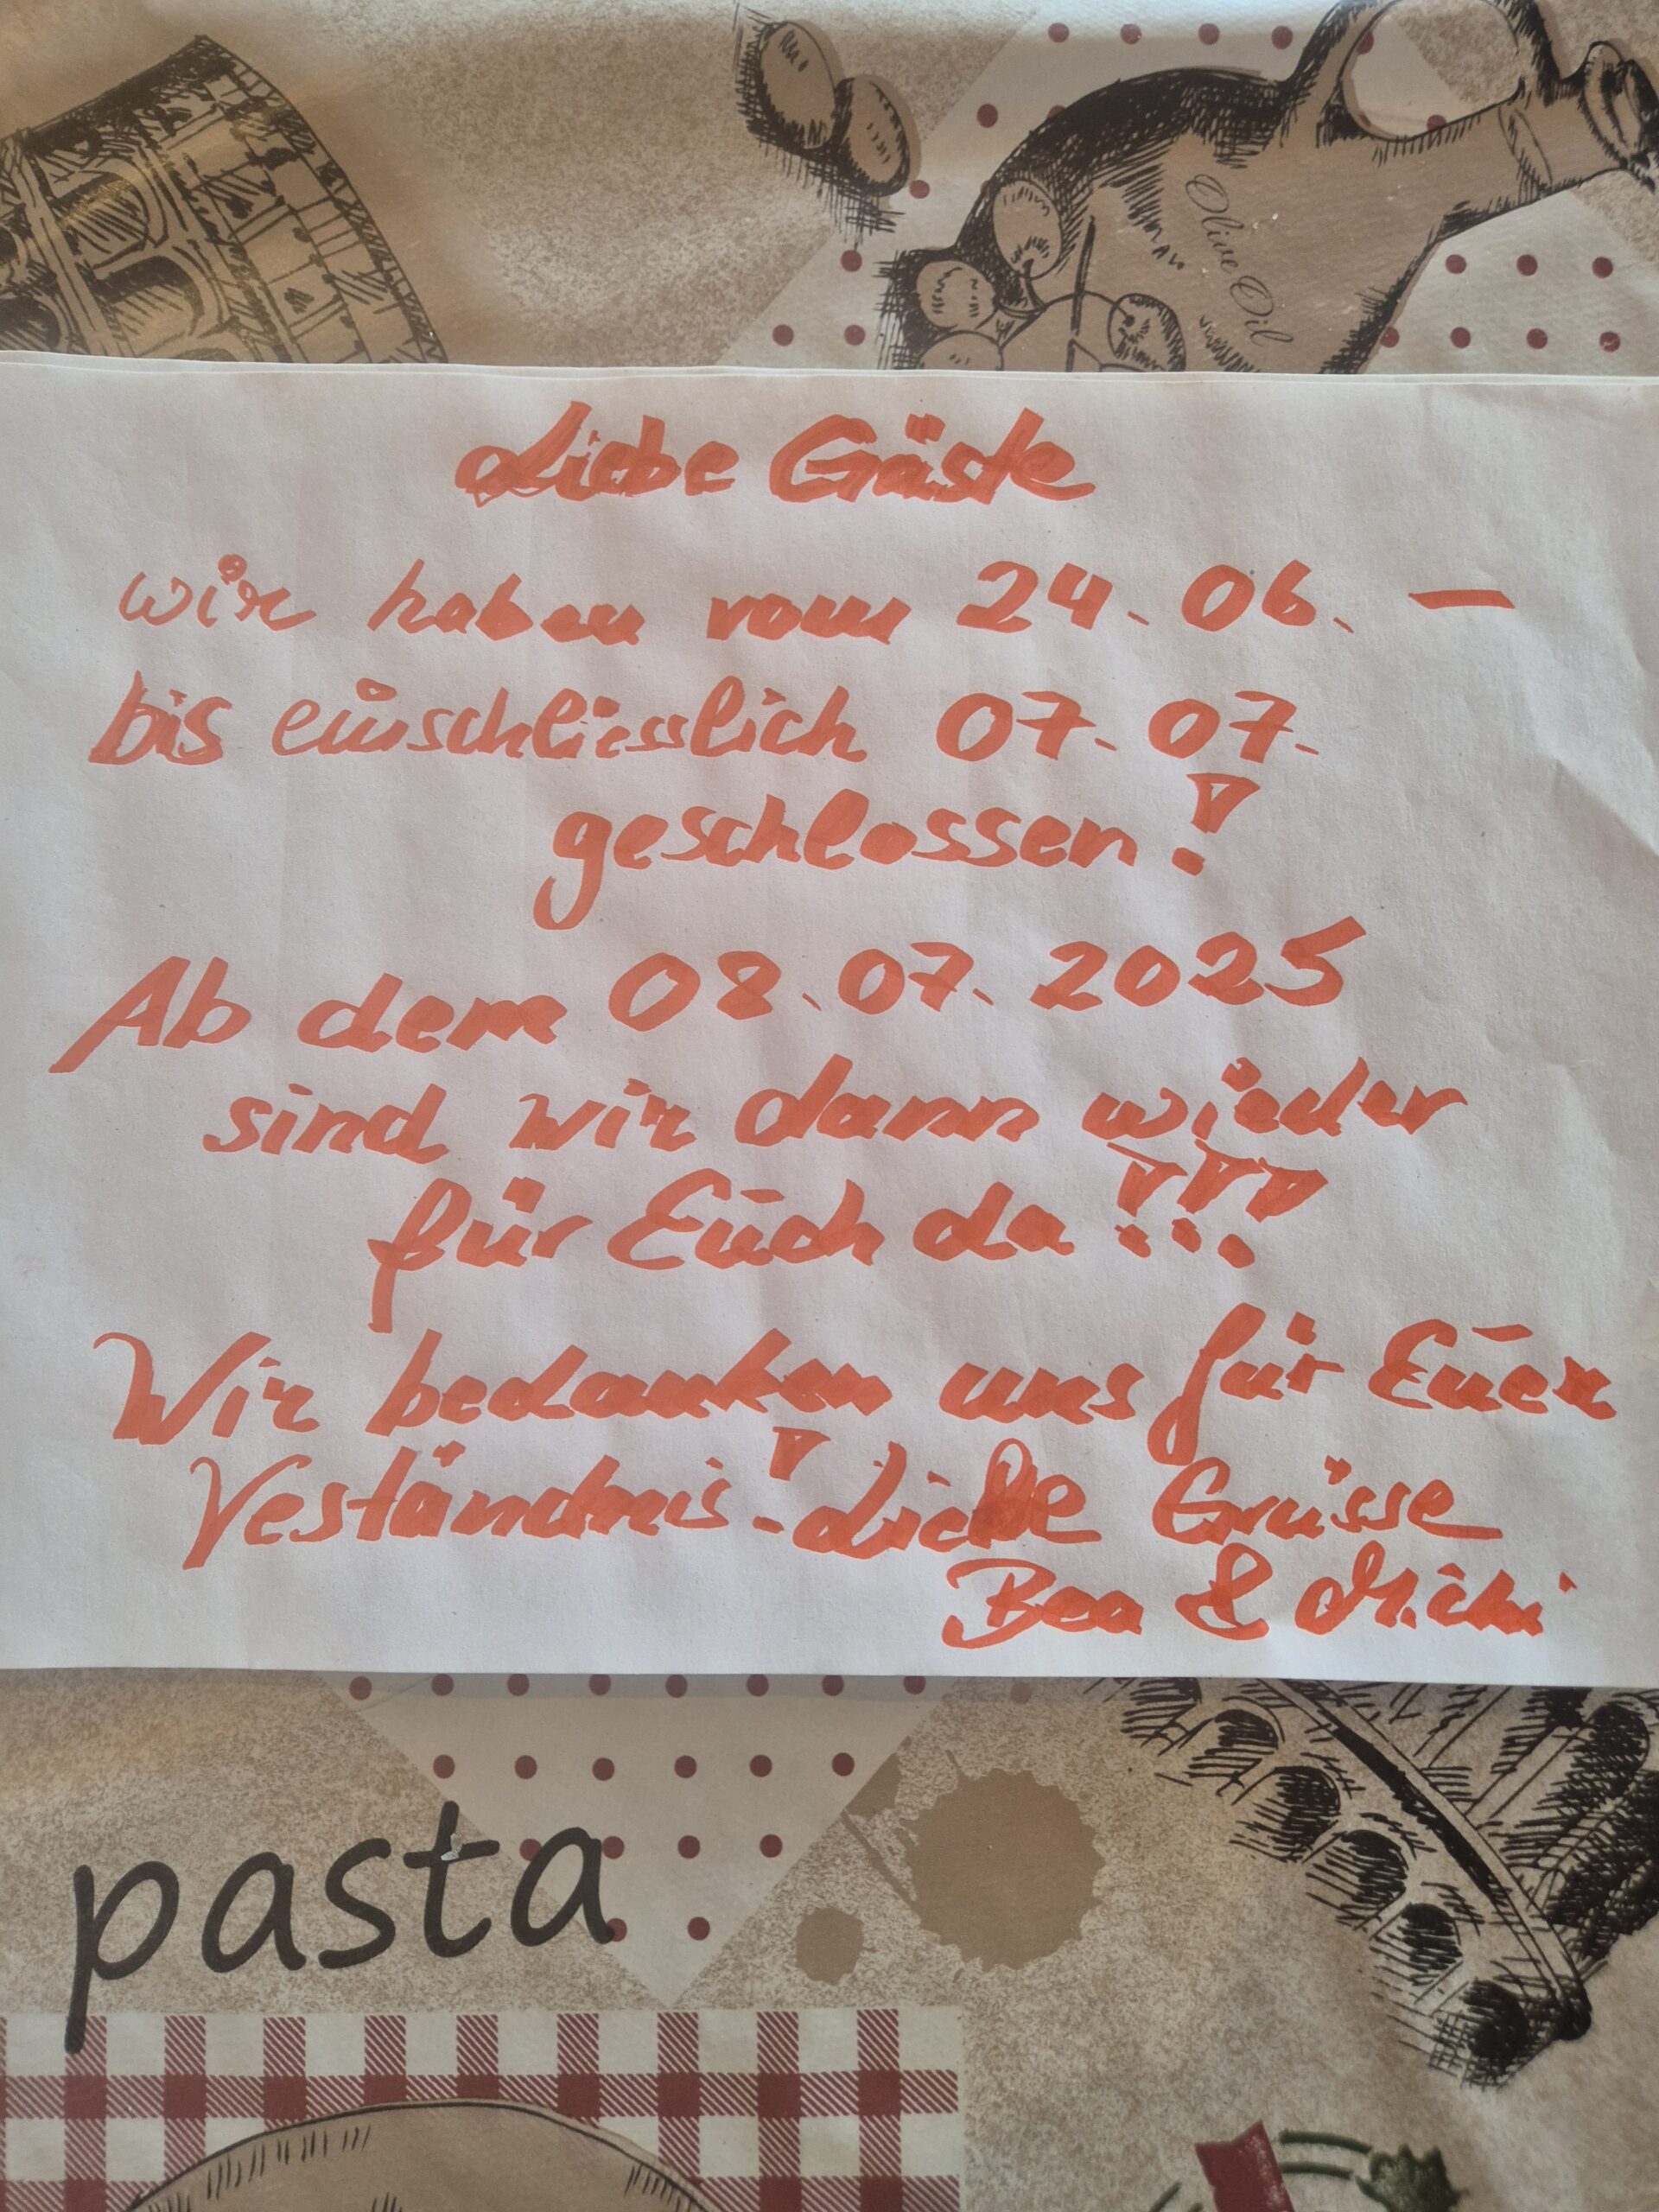 Olive Oil
Liebe Gäste
wir haben vom 24.06. —
bis einschliesslich 07.07.
geschlossen!
Ab dem 08.07.2025
sind wir dann wieder
für Euch da!!!
Wir bedanken uns für Euer
Veständnis! Liebe Grüsse
Bea & Michi
pasta